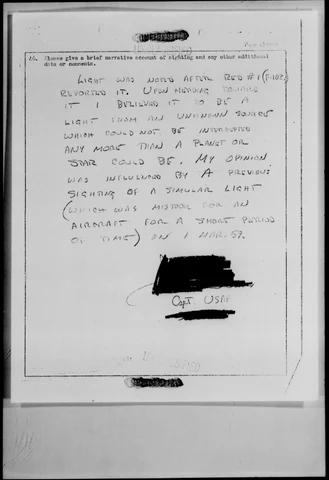 46. Please give a brief narrative account of sighting and any other additional
data or comments.
LIGHT WAS NOTED AFTER RED #1 (F-102)
REPORTED IT. UPON HEADING TOWARD
IT I BELIEVED IT TO BE A
LIGHT FROM AN UNKNOWN SOURCE
WHICH COULD NOT BE INTERCEPTED
ANY MORE THAN A PLANET OR
STAR COULD BE. MY OPINION
WAS INFLUENCED BY A PREVIOUS
SIGHTING OF A SIMULAR LIGHT
(WHICH WAS MISTOOK FOR AN
AIRCRAFT FOR A SHORT PERIOD
OF TIME) ON 1 MAR. 59.
Capt. USAF